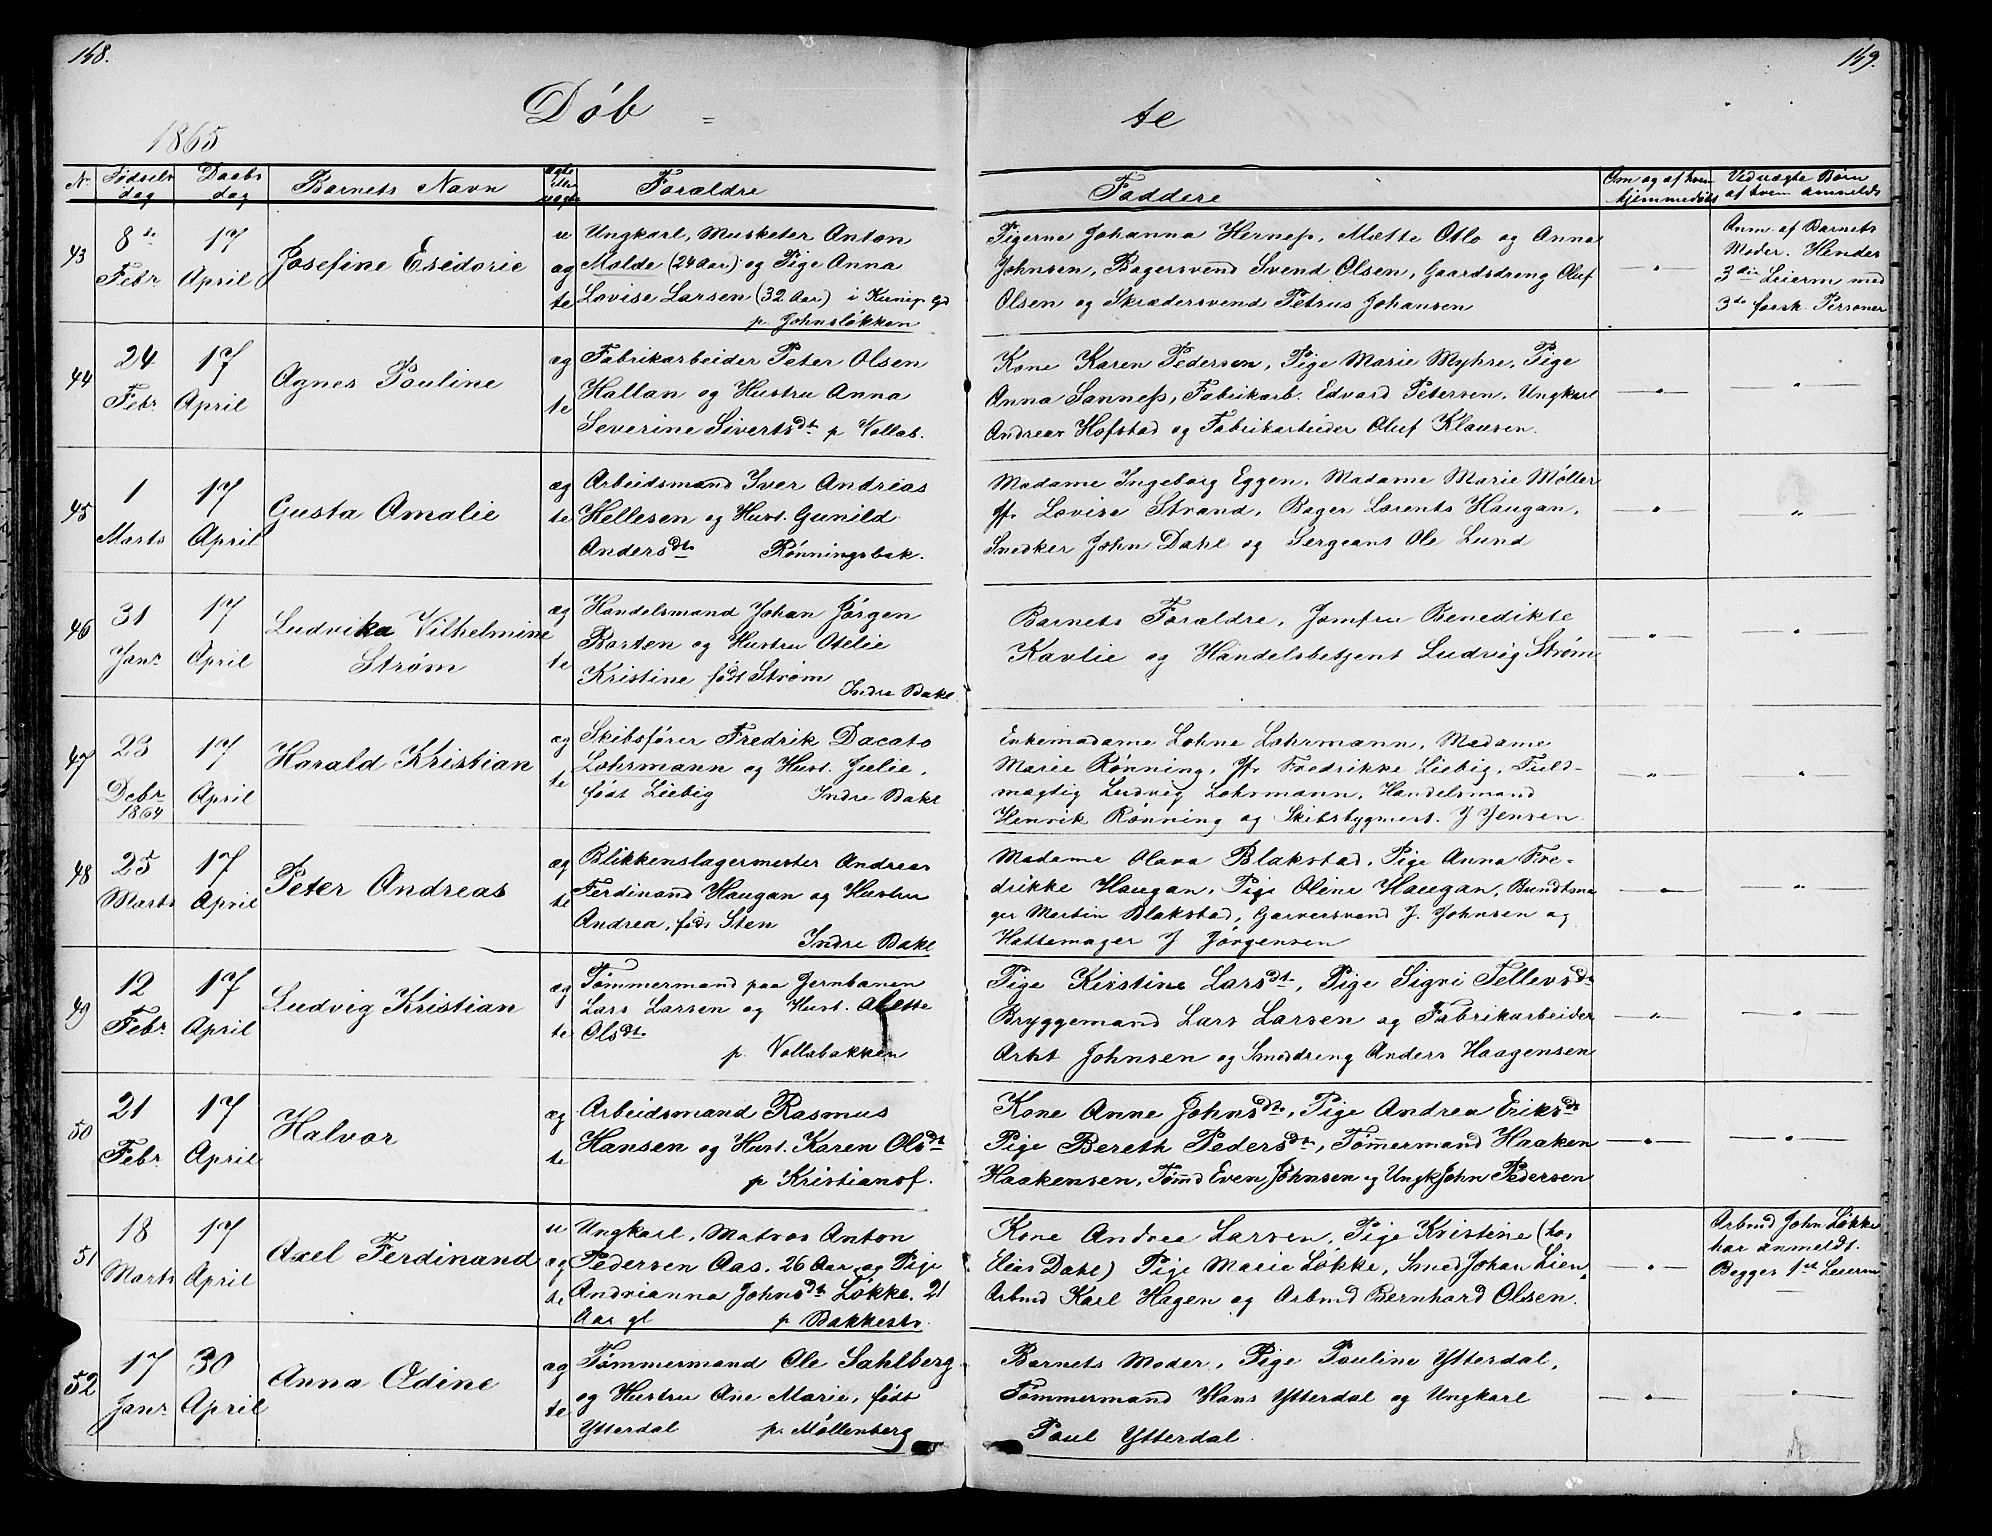 148.
149.
Døb =
te
1865
Nr
Fødsels
dag
Daabs
dag
Barnets Navn
ægte
eller
uægte
Forældre
Faddere
Om og af hvem
hjemmedøbt
Ved uægte Børn
af hvem anmeldt
43
8de
Febr
17
April
Josefine Esidorie
u
æg
te
Ungkarl, Musketer Anton
Molde (24 Aar) og Pige Anna
Lovise Larsen (32 Aar) i
p. Johnsløkken
Pigerne Johanna Herness, Mætte Otlo og Anna
Johnsen, Bagersvend Svend Olsen, Gaardsdreng Oluf
Olsen og Skrædersvend Petrus Johansen
—"—
Anm. af Barnets
Moder. Hendes
3die Leierm med
3de forsk. Personer
44
24
Febr.
17
April
Agnes Pouline
æg
te
Fabrikarbeider Peter Olsen
Hallan og Hustru Anna
Severine Sivertsdt p Vollab.
Kone Karen Pedersen, Pige Marie Myhre, Pige
Anna Sanness, Fabrikarb. Edvard Petersen, Ungkarl
Andreas Hofstad og Fabrikarbeider Oluf Klausen.
—"—
—"—
45
1
Marts
17
April
Gusta Amalie
æg
te
Arbeidsmand Iver Andreas
Hellesen og Hust. Gunild
Andersdt Rønningsbak.
Madame Ingeborg Eggen, Madame Marie Møller
Jfr. Lovise Strand, Bager Lorents Haugan,
Snedker John Dahl og Sergeant Ole Lund
—"—
—"—
46
31
Janr
17
April
Ludvika Vilhelmine
Strøm
æg
te
Handelsmand Johan Jørgen
Barten og Hustru Otelie
Kristine født Strøm
Indre Bakl
Barnets Forældre, Jomfru Benedikte
Kavlie og Handelsbetjent Ludvig Strøm
—"—
—"—
47
23
Debr
1864
17
April
Harald Kristian
æg
te
Skibsfører Fredrik Dacato
Lohrmann og Hust. Julie,
født Liebig Indre Bakl
Enkemadame Lohne Lohrmann, Madame
Marie Rønning, Jfr Fredrikke Liebig, Fuld-
mægtig Ludvig Lohrmann, Handelsmand
Henrik Rønning og Skibsbygmest. J Jensen
—"—
—"—
48
25
Marts
17
April
Peter Andreas
æg
te
Blikkenslagermester Andreas
Ferdinand Haugan og Hustru
Andrea, føds Sten
Indre Bakl
Madame Olava Blakstad, Pige Anna Fre-
drikke Haugan, Pige Oline Haugan, Bundtma
ger Martin Blakstad, Garversvend J. Johnsen og
Hattemager J Jørgensen
—"—
—"—
49
12
Febr
17
April
Ludvig Kristian
æg
te
Tømmermand paa Jernbanen
Lars Larsen og Hust. Olette
Olsdt.
p. Vollabakken
Pige Kirstine Larsdt., Pige Sigri Tellevsdt
Bryggemand Lars Larsen og Fabrikarbeider
Arnt Johnsen og Smeddreng Anders Haagensen
—"—
—"—
50
21
Febr
17
April
Halvor
æg
te
Arbeidsmand Rasmus
Hansen og Hust. Karen Olsdt
p Kristiansf.
Kone Anne Johnsdt., Pige Andrea Eriksdt
Pige Bereth Pedersdt., Tømmermand Haaken
Haakensen, Tømd Even Johnsen og Ungk John Pedersen
—"—
—"—
51
18
Marts
17
April
Axel Ferdinand
u
æg
te
Ungkarl, Matros Anton
Pedersen Aas. 26 Aar og Pige
Andrianna Johnsdt Løkke. 21
Aar gl p Bakkestr.
Kone Andrea Larsen, Pige Kristine (hos
Elias Dahl) Pige Marie Løkke, Smed Johan Lien,
Arbmd Karl Hagen og Arbmd Bernhard Olsen.
—"—
Arbmd John Løkke
har anmeldt.
Begges 1ste Leierm
52
17
Janr
30
April
Anna Ødine
æg
te
Tømmermand Ole Sahlberg
og Hustru Ane Marie, født
Ytterdal p. Møllenberg
Barnets Moder, Pige Pauline Ytterdal,
Tømmermand Hans Ytterdal og Ungkarl
Paul Ytterdal.
—"—
—"—